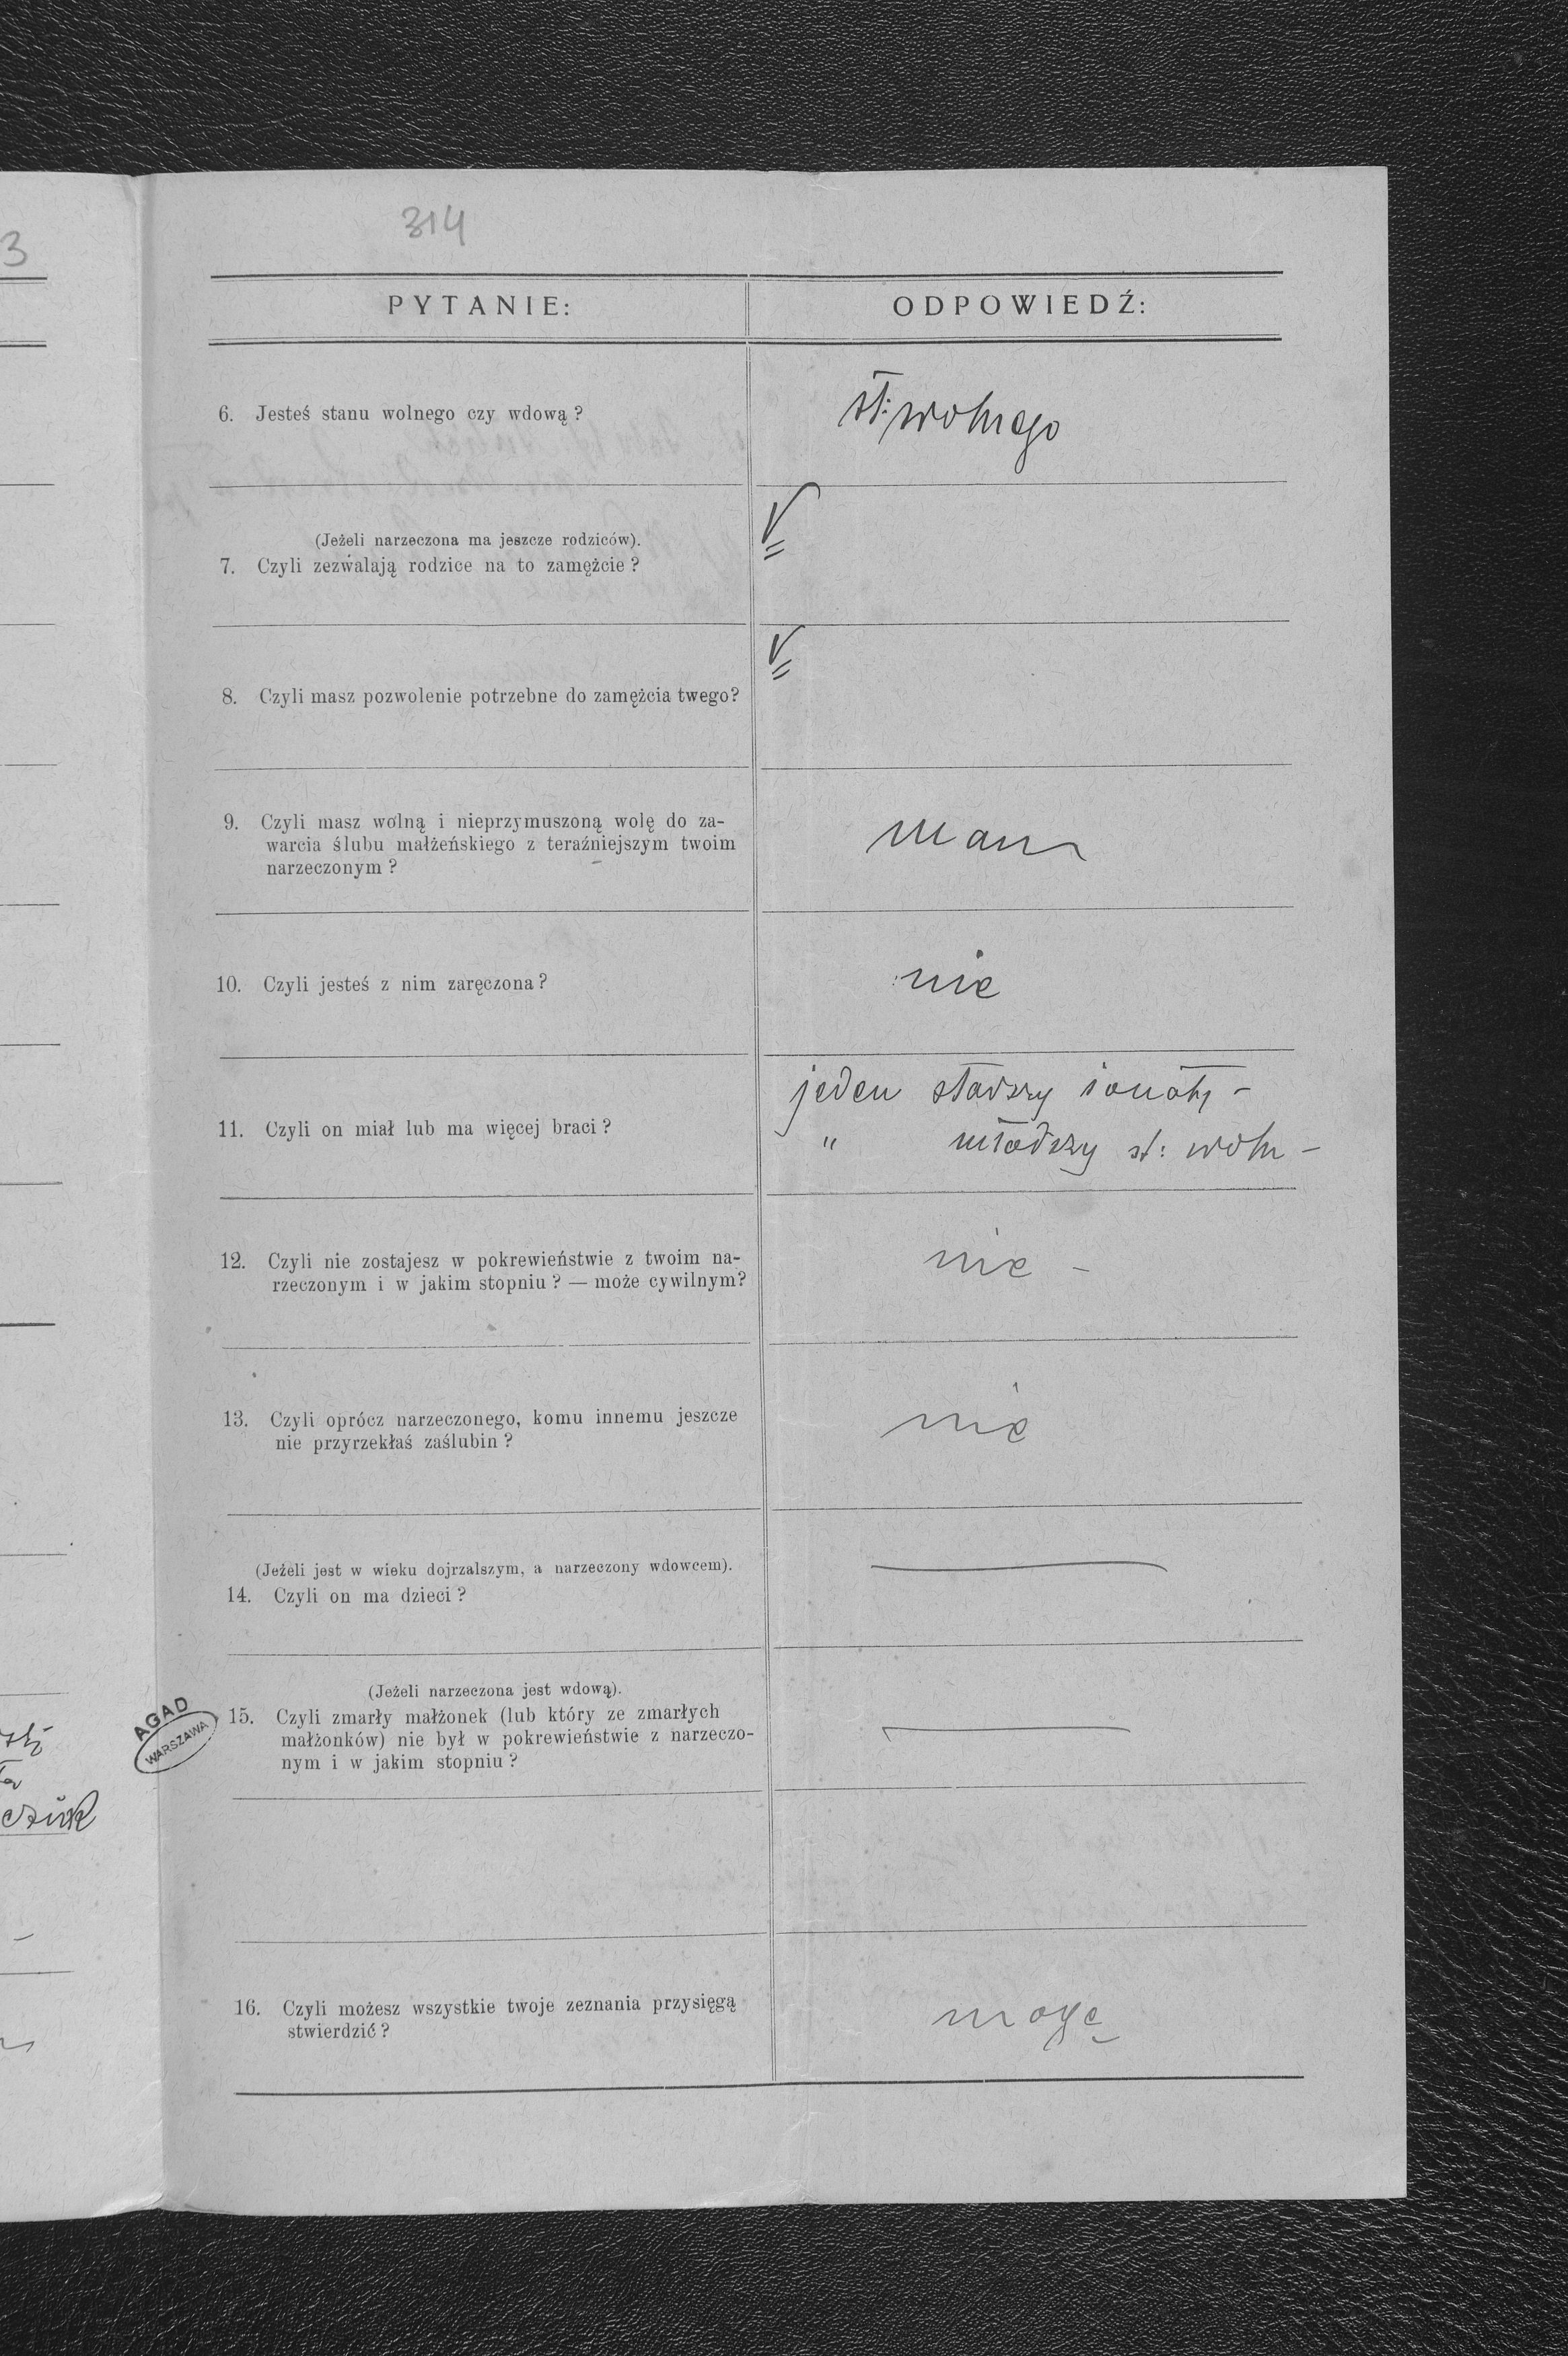 3
314
PYTANIE:
ODPOWIEDŹ:
6. Jesteś stanu wolnego czy wdową?
st: wolnego
(Jeżeli narzeczona ma jeszcze rodziców).
7. Czyli zezwalają rodzice na to zamężcie?
8. Czyli masz pozwolenie potrzebne do zamężcia twego?
9. Czyli masz wolną i nieprzymuszoną wolę do za-
warcia ślubu małżeńskiego z teraźniejszym twoim
narzeczonym?
mam
10. Czyli jesteś z nim zaręczona?
nie
11. Czyli on miał lub ma więcej braci?
jeden starszy żonaty -
" młodszy st: woln -
12. Czyli nie zostajesz w pokrewieństwie z twoim na-
rzeczonym i w jakim stopniu? — może cywilnym?
nie -
13. Czyli oprócz narzeczonego, komu innemu jeszcze
nie przyrzekłaś zaślubin?
nie
(Jeżeli jest w wieku dojrzalszym, a narzeczony wdowcem).
14. Czyli on ma dzieci?
(Jeżeli narzeczona jest wdową).
15. Czyli zmarły małżonek (lub który ze zmarłych
małżonków) nie był w pokrewieństwie z narzeczo-
nym i w jakim stopniu?
AGAD
WARSZAWA
16. Czyli możesz wszystkie twoje zeznania przysięgą
stwierdzić?
mogę